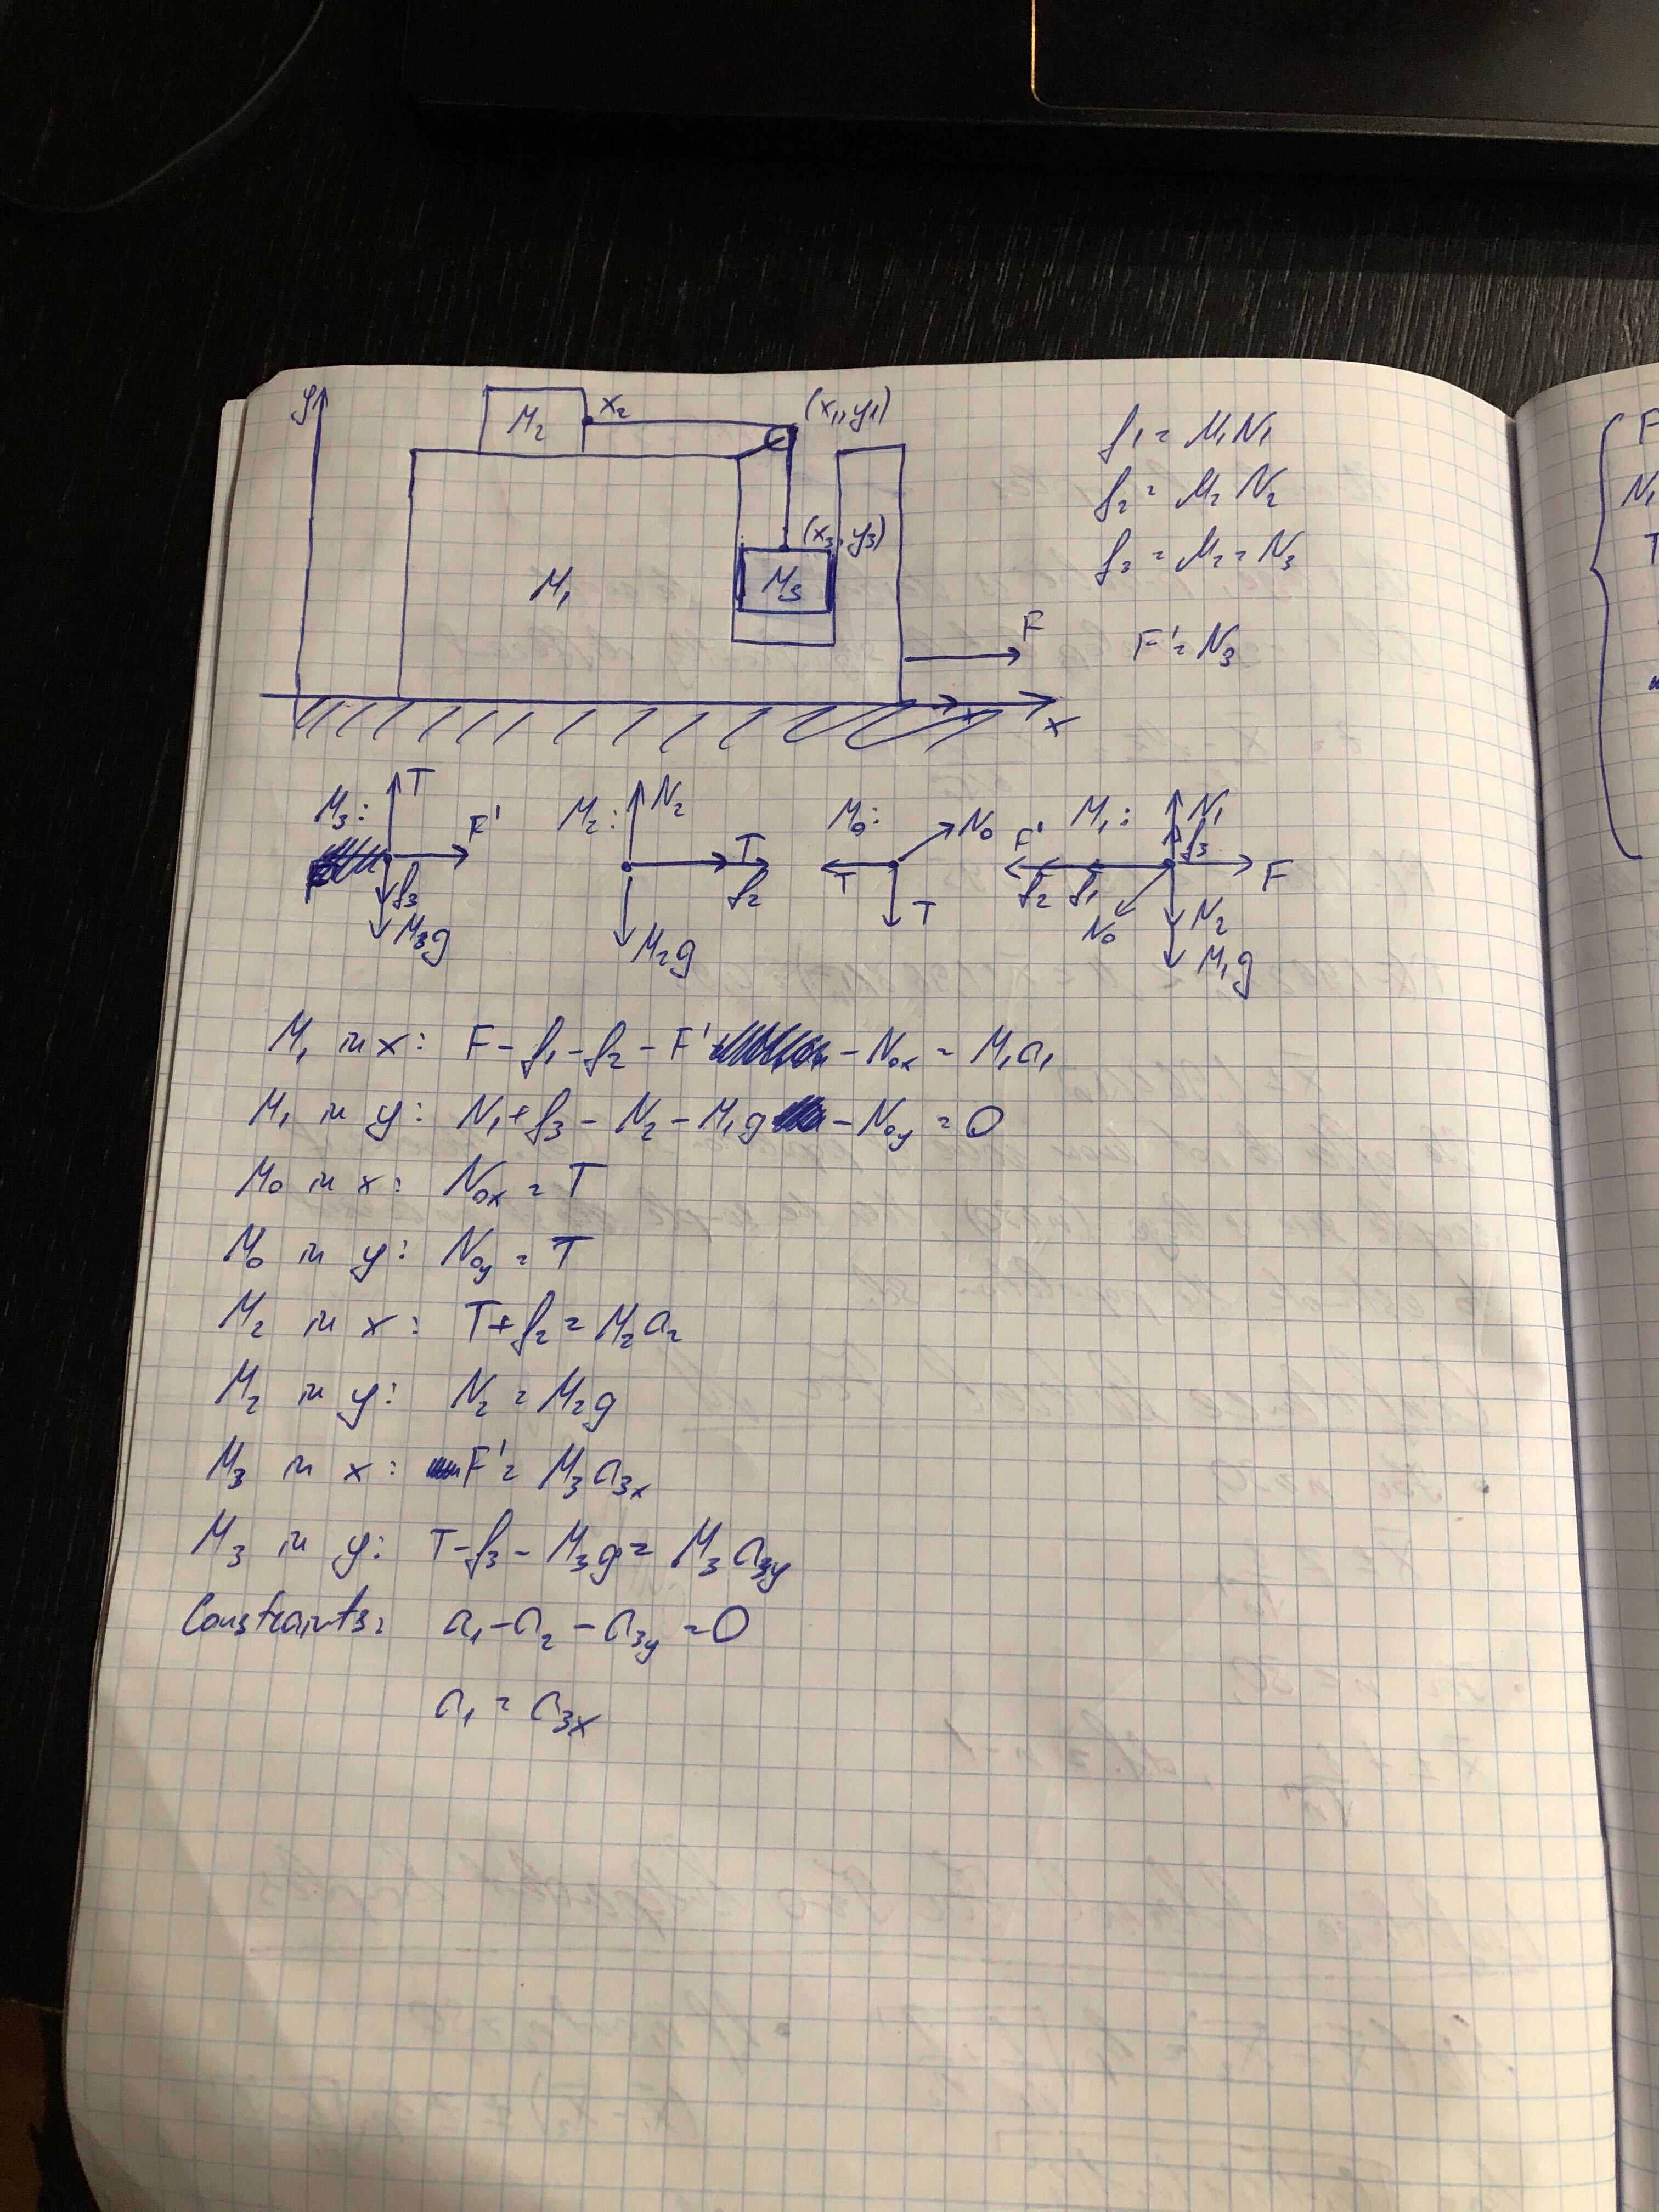 y
M₂
x₂
(x₁, y₁)
f₁ = μ₁N₁
f₂ = μ₂ N₂
(x₃, y₃)
f₃ = μ₂ = N₃
M₁
M₃
F
F' = N₃
x
x
M₃: T F' f₃ M₃g
M₂: N₂ T f₂ M₂g
M₀: N₀ T T
M₁: N₁ f₃ F' f₂ f₁ F N₀ N₂ M₁g
M₁ in x: F - f₁ - f₂ - F' - N₀ₓ = M₁a₁
M₁ in y: N₁ + f₃ - N₂ - M₁g - N₀y = 0
M₀ in x: N₀ₓ = T
M₀ in y: N₀y = T
M₂ in x: T + f₂ = M₂a₂
M₂ in y: N₂ = M₂g
M₃ in x: F' = M₃a₃ₓ
M₃ in y: T - f₃ - M₃g = M₃a₃y
Constraints: a₁ - a₂ - a₃y = 0
a₁ = a₃ₓ